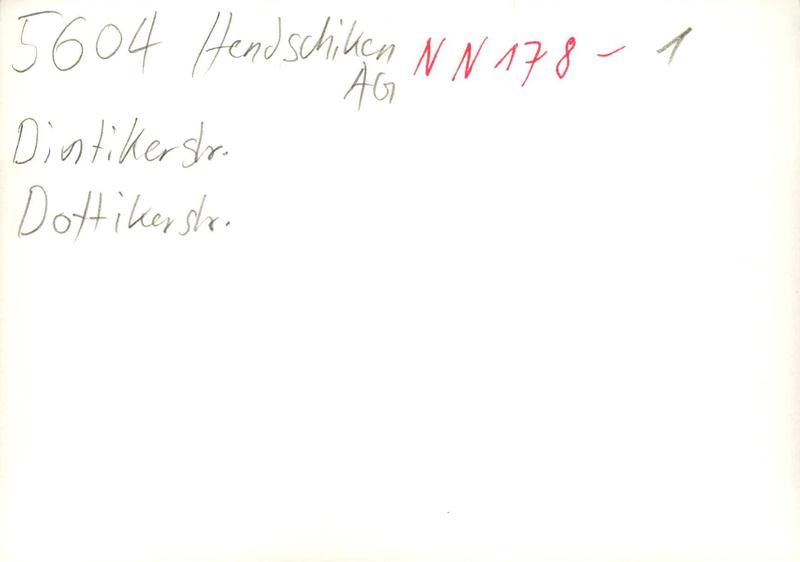 5604 Hendschiken NN178-1
AG
Dintikerstr.
Dottikerstr.